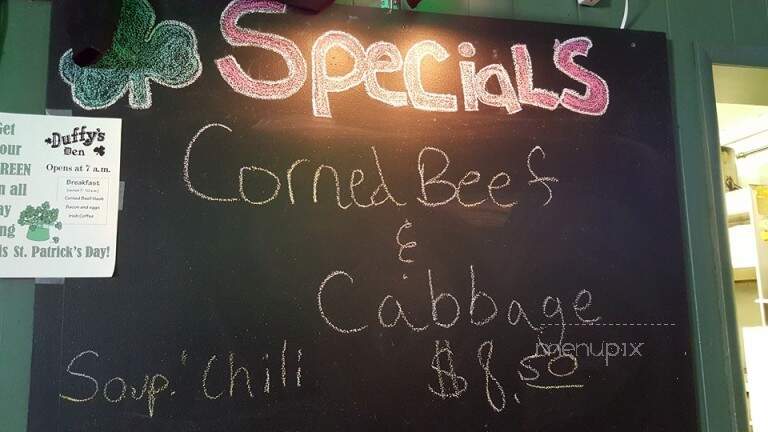 Specials
Corned Beef
&
Cabbage
Soup: Chili $8.50
menupix
Get
our
GREEN
n all
ay
ng
is St. Patrick's Day!
Duffy's
Den
Opens at 7 a.m.
Breakfast
Corned Beef Hash
Bacon and eggs
Irish Coffee